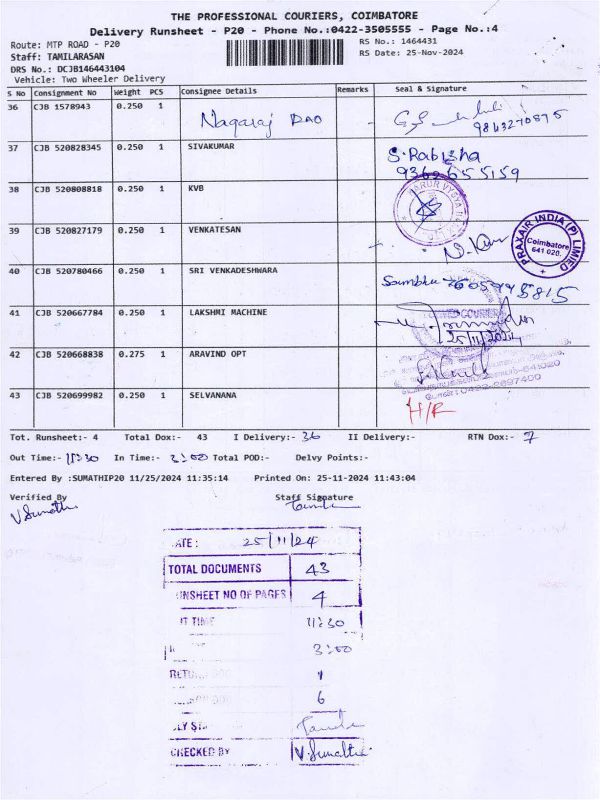 THE PROFESSIONAL COURIERS, COIMBATORE
Delivery Runsheet - P20 - Phone No.:0422-3505555 - Page No.:4
Route: MTP ROAD - P20
RS No.: 1464431
Staff: TAMILARASAN
RS Date: 25-Nov-2024
DRS No.: DCJB146443104
Vehicle: Two Wheeler Delivery
S No Consignment No Weight PCS Consignee Details Remarks Seal & Signature
36 CJB 1578943 0.250 1 Nagaraj Rao
9843270875
37 CJB 520828345 0.250 1 SIVAKUMAR S. Rabisha
9362655159
38 CJB 520808818 0.250 1 KVB
39 CJB 520827179 0.250 1 VENKATESAN
PRAXAIR INDIA (P) LIMIED
Coimbatore
641 020.
40 CJB 520780466 0.250 1 SRI VENKADESHWARA
41 CJB 520667784 0.250 1 LAKSHMI MACHINE
25/11/2024
42 CJB 520668838 0.275 1 ARAVIND OPT
43 CJB 520699982 0.250 1 SELVANANA H/R
Tot. Runsheet:- 4 Total Dox:- 43 I Delivery:- 36 II Delivery:- RTN Dox:- 7
Out Time:- 11:30 In Time:- 3:00 Total POD:- Delvy Points:-
Entered By :SUMATHIP20 11/25/2024 11:35:14 Printed On: 25-11-2024 11:43:04
Verified By Staff Signature
V. Sumathi
ATE : 25/11/24
TOTAL DOCUMENTS 43
UNSHEET NO OF PAGES 4
T TIME 11:30
3:00
RETU
6
LY S
CHECKED BY V. Sumathi